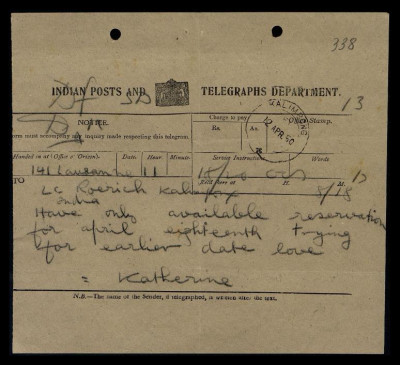 338
INDIAN POSTS AND TELEGRAPHS DEPARTMENT.
13
NOTICE. Charge to pay Office Stamp.
must accompany any inquiry made respecting this telegram. Rs. As.
KALIMPONG 12 APR. 50
Handed in at (Office of Origin). Date. Hour. Minute. Service Instructions. Words.
141 Lausanne 11 18/10
TO Recd here at H. M.
LC Roerich
India
Have only available reservation
for april eighteenth trying
for earlier date love
= Katherine
N.B.—The name of the Sender, if telegraphed, is written after the text.